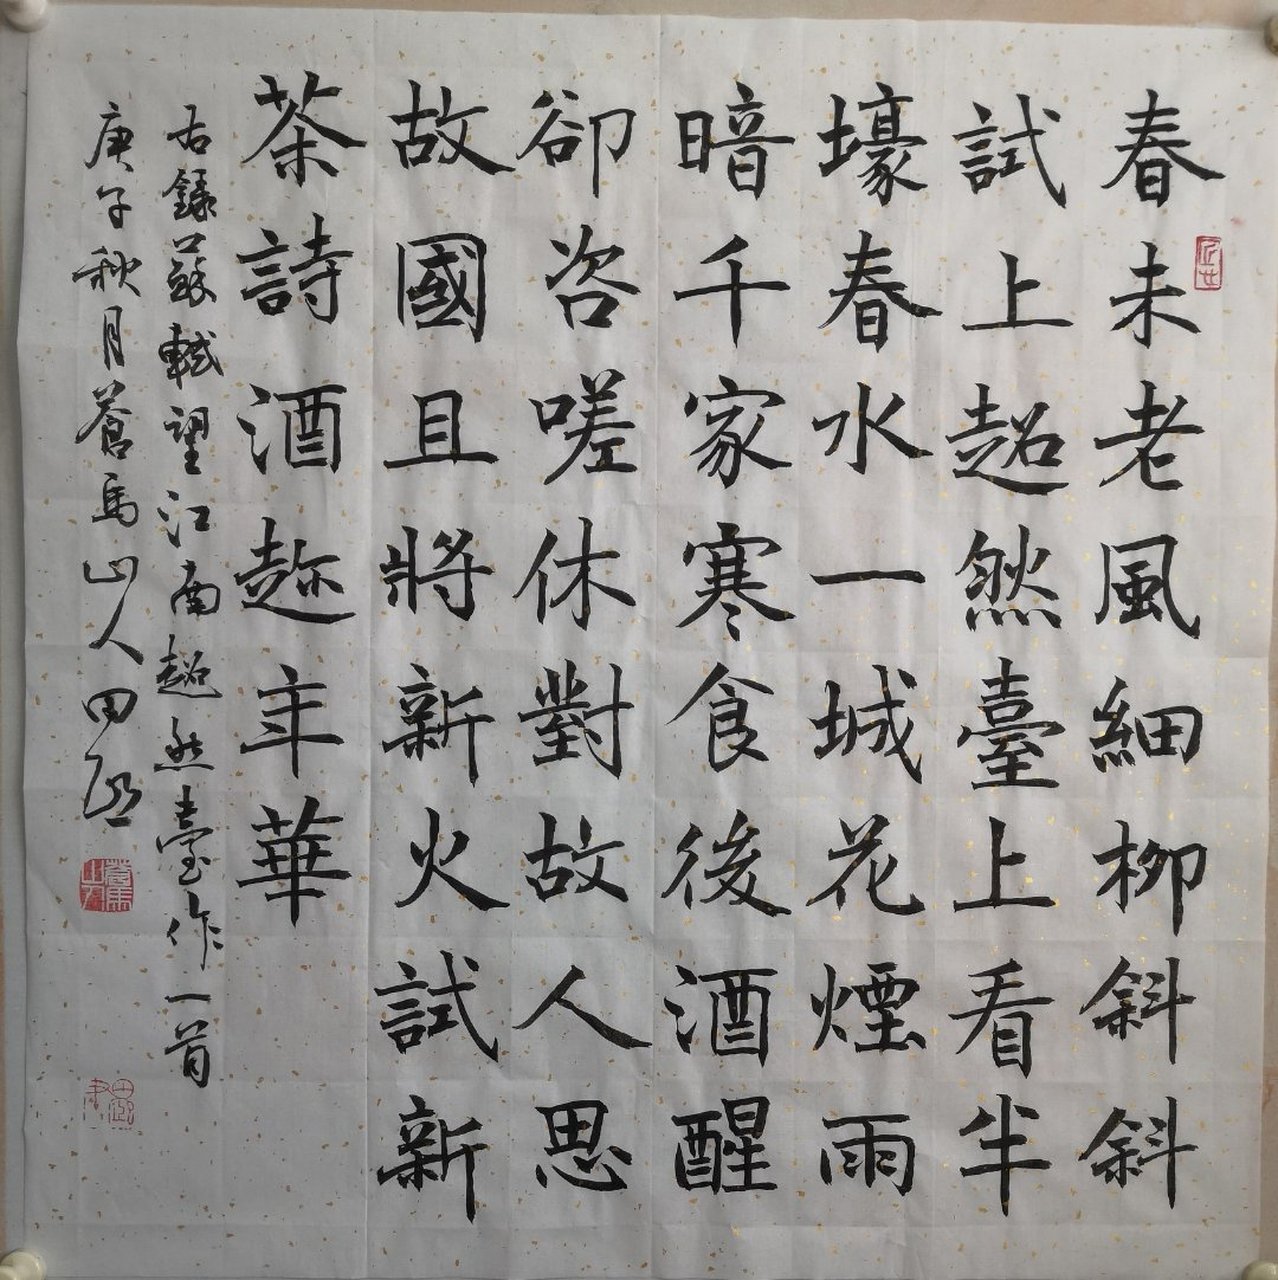 春未老風細柳斜斜
試上超然臺上看半
壕春水一城花煙雨
暗千家寒食後酒醒
卻咨嗟休對故人思
故國且將新火試新
茶詩酒趂年華
右錄蘇軾望江南超然臺作一首
庚子秋月蒼馬山人田